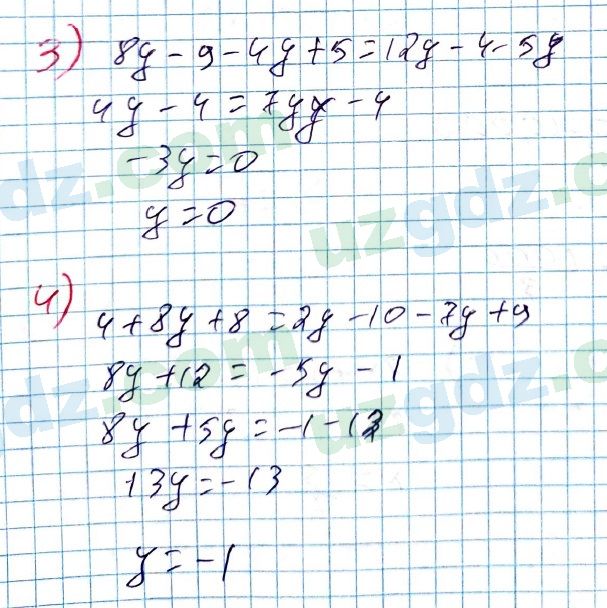 3) 8y - 9 - 4y + 5 = 12y - 4 - 5y
4y - 4 = 7y - 4
-3y = 0
y = 0
4) 4 + 8y + 8 = 2y - 10 - 7y + 9
8y + 12 = -5y - 1
8y + 5y = -1 - 12
13y = -13
y = -1
uzgdz.com
uzgdz.com